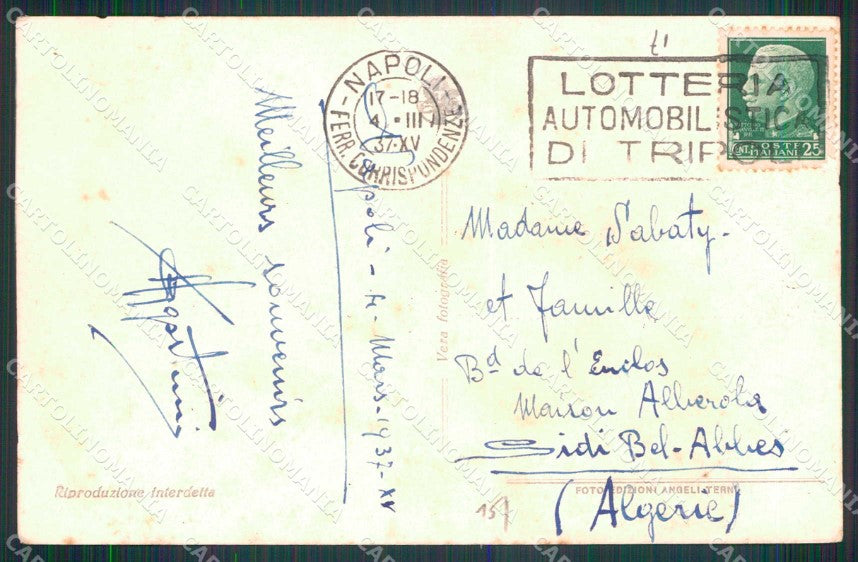 NAPOLI
FERR. CORRISPONDENZE
17-18
4 · III
37·XV
LOTTERIA
AUTOMOBILISTICA
DI TRIPOLI
POSTE
ITALIANE
CENT. 25
Meilleurs souvenirs
Napoli - 4 - Mars - 1937 - XV
Madame Sabaty -
et Famille
Bd de l'Enclos
Maison Alberola
Sidi Bel-Abbes
(Algerie)
Vera fotografia
Riproduzione interdetta
FOTO EDIZIONI ANGELI TERNI
157
CARTOLINOMANIA